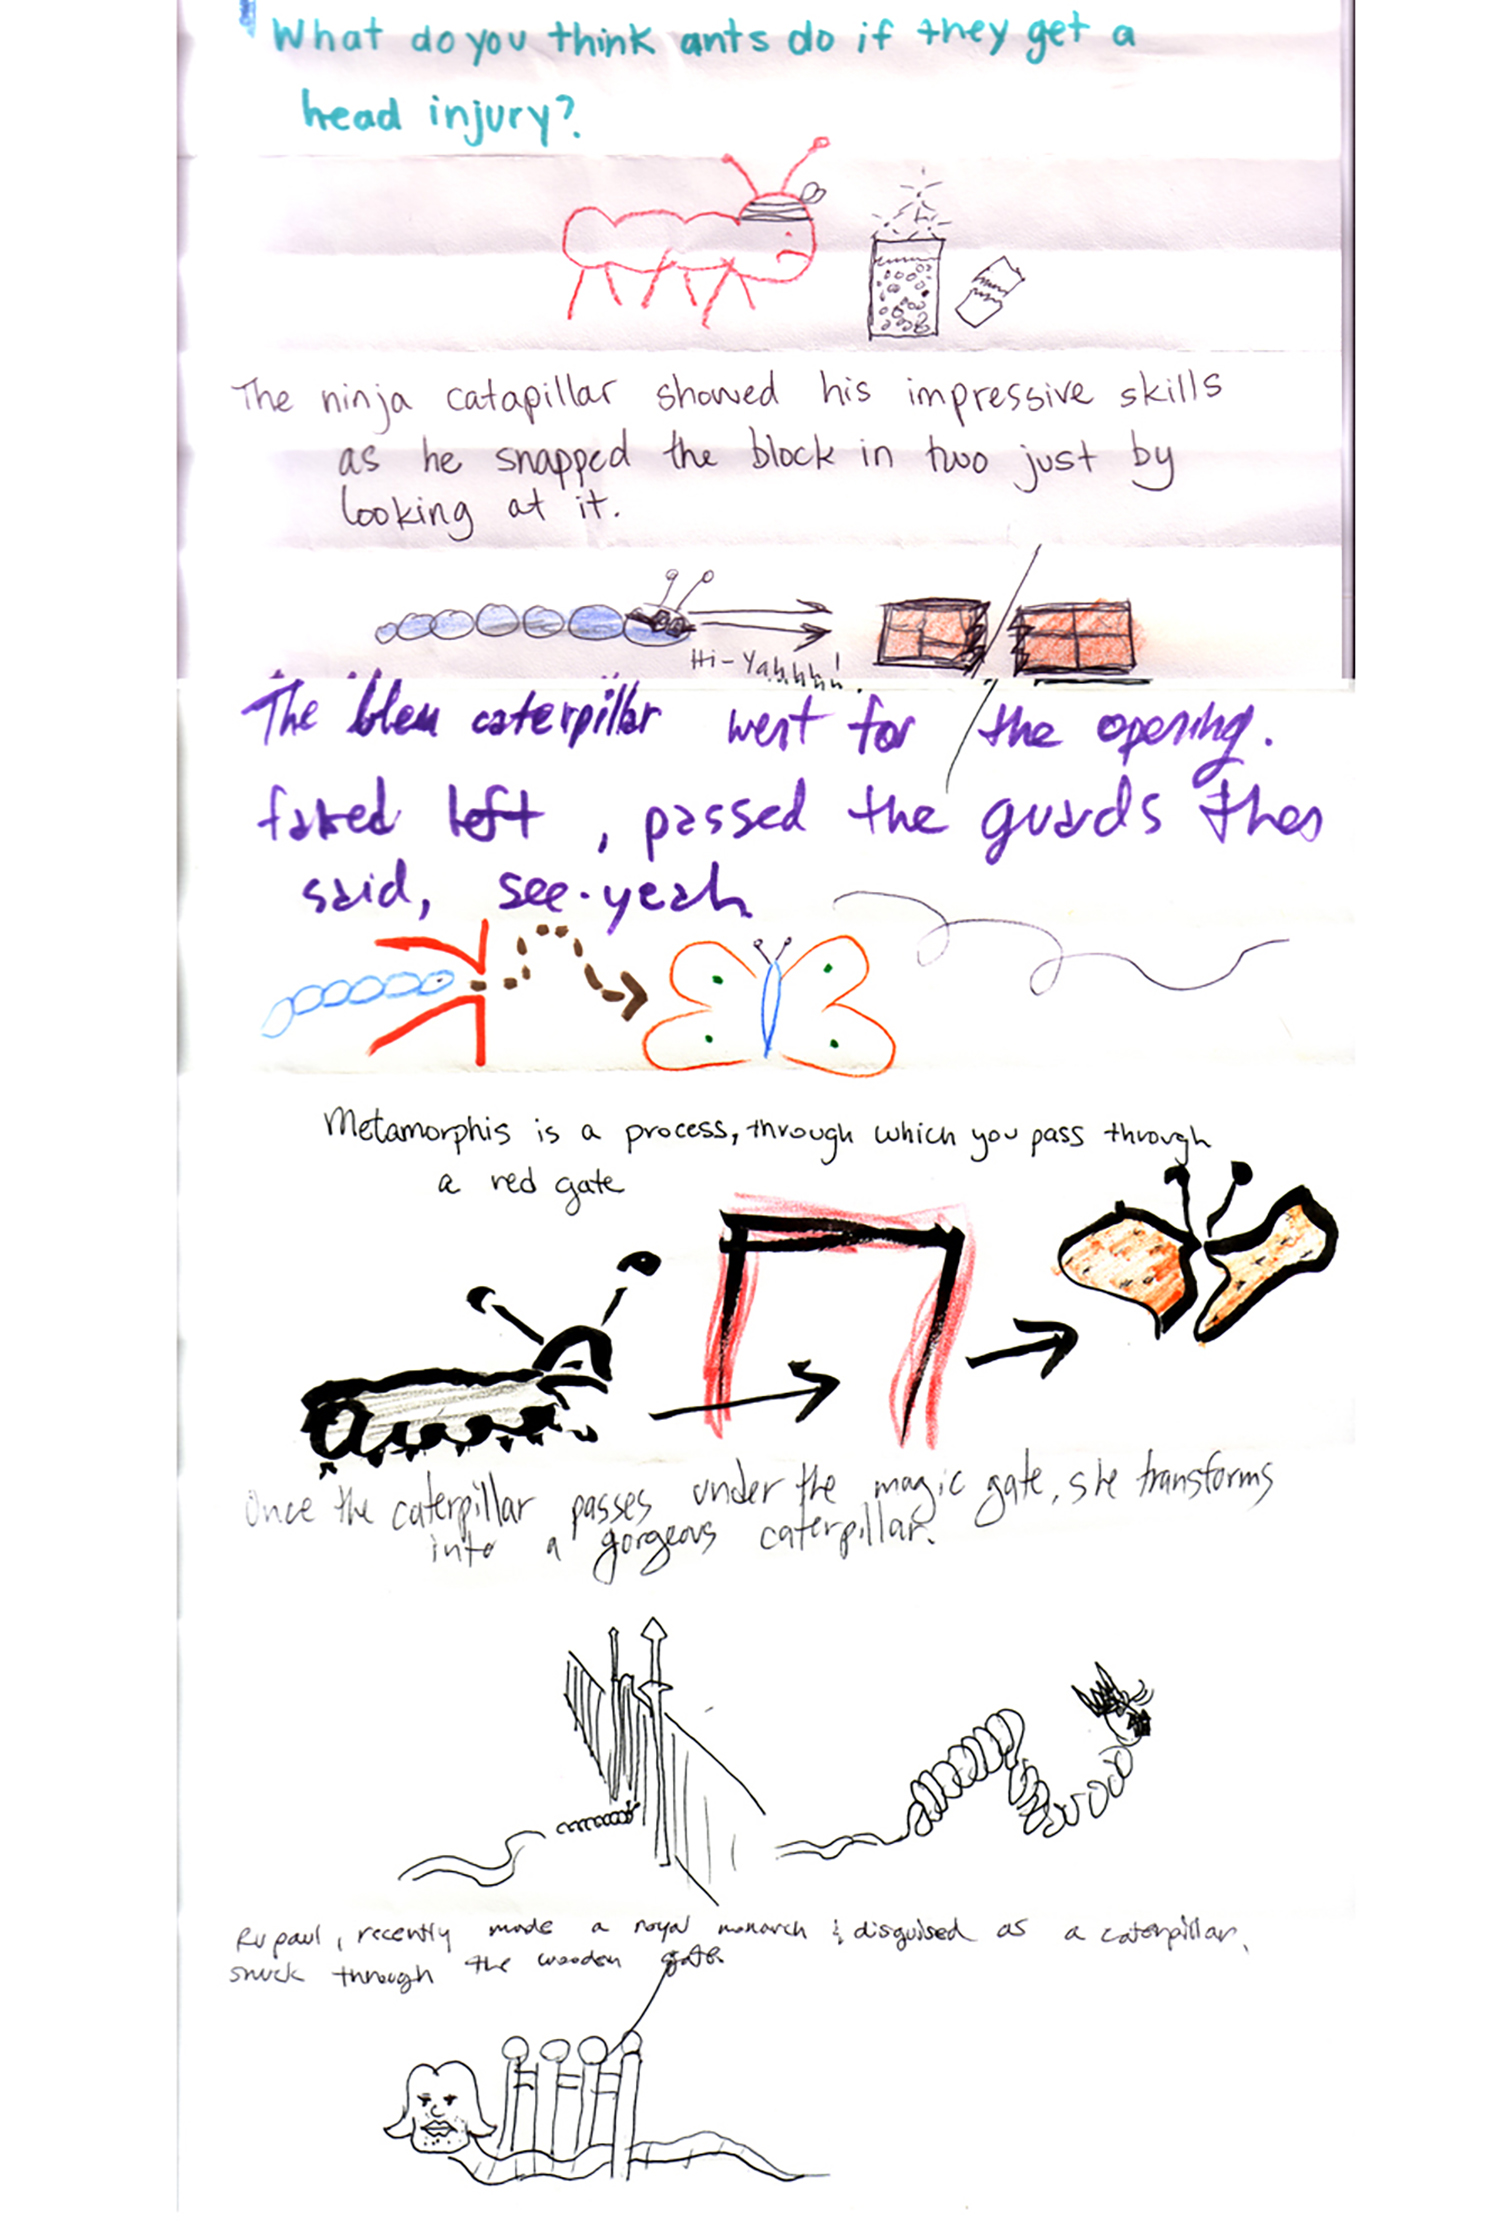 What do you think ants do if they get a
head injury?
The ninja catapillar showed his impressive skills
as he snapped the block in two just by
looking at it.
Hi-Yahhhh!
The bleu caterpillar went for the opening.
faked left, passed the guards then
said, see-yeah
Metamorphis is a process, through which you pass through
a red gate
Once the caterpillar passes under the magic gate, she transforms
into a gorgeous caterpillar.
Ru paul, recently made a royal monarch & disguised as a caterpillar,
snuck through the wooden gate.